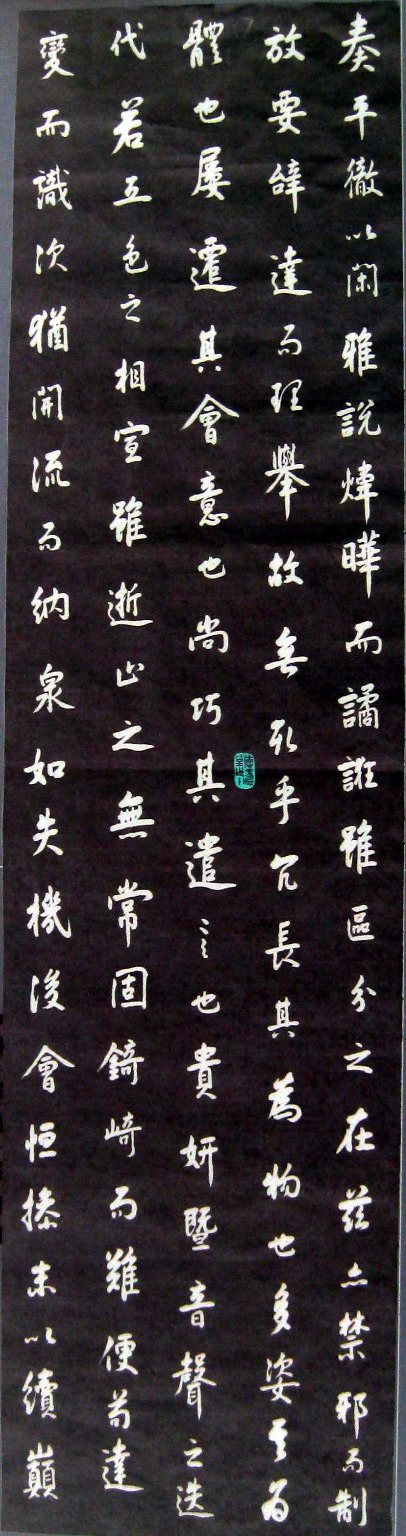 奏平徹以閑雅說煒曄而譎誑雖區分之在茲亦禁邪而制
放要辭達而理舉故無取乎冗長其為物也多姿其為
體也屢遷其會意也尚巧其遣言也貴妍暨音聲之迭
代若五色之相宣雖逝止之無常固錡崎而難便苟達
變而識次猶開流而納泉如失機後會恒操末以續巔